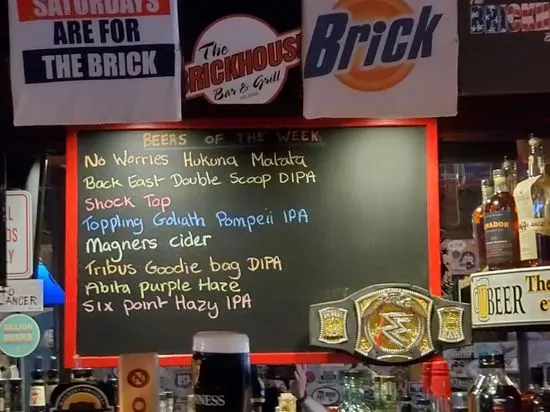 SATURDAYS
ARE FOR
THE BRICK
The
BRICKHOUSE
Bar & Grill
Brick
BEERS OF THE WEEK
No Worries Hukuna Matata
Back East Double Scoop DIPA
Shock Top
Toppling Goliath Pompeii IPA
Magners cider
Tribus Goodie bag DIPA
Abita purple Haze
Six point Hazy IPA
W
BEER
The
ZILLION
BEERS